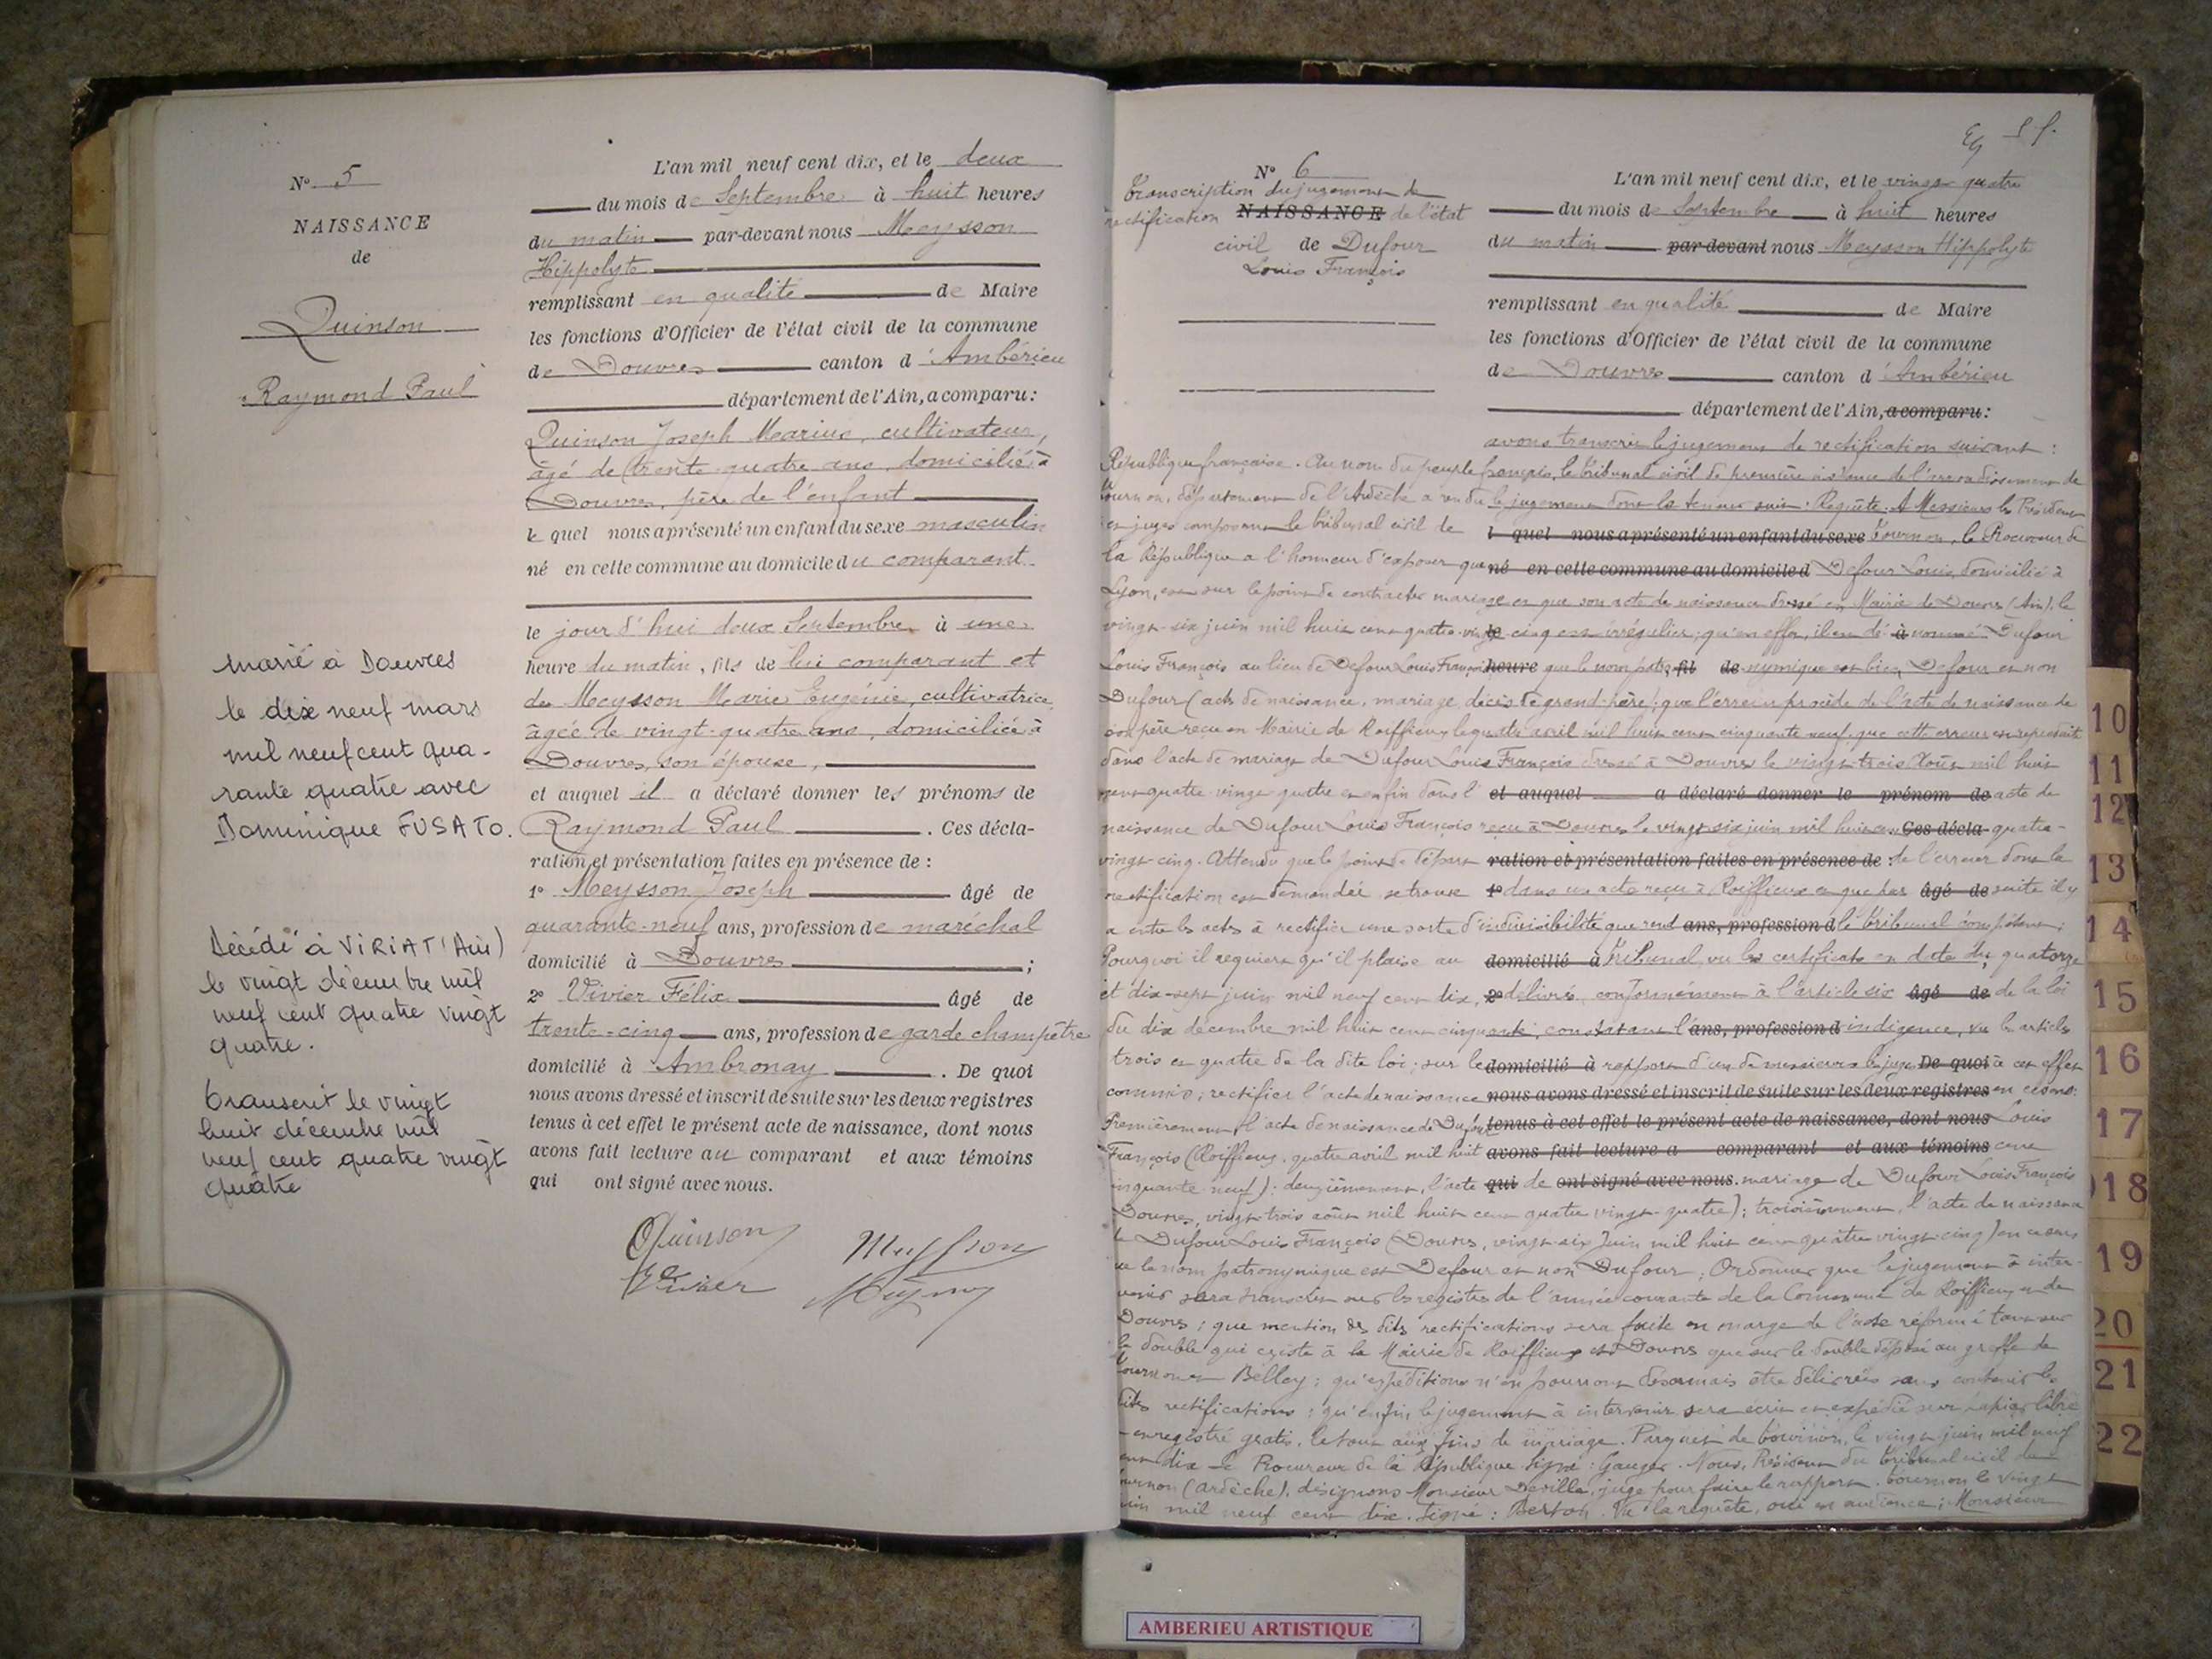 N° 5
NAISSANCE
de
Quinson
Raymond Paul
marié à Douvres
le dix neuf mars
mil neuf cent qua-
rante quatre avec
Dominique FUSATO.
Décédé à VIRIAT (Ain)
le vingt décembre mil
neuf cent quatre vingt
quatre.
Transcrit le vingt
huit décembre mil
neuf cent quatre vingt
quatre
L'an mil neuf cent dix, et le deux
du mois de Septembre à huit heures
du matin par-devant nous Meysson
Hippolyte
remplissant en qualité de Maire
les fonctions d'Officier de l'état civil de la commune
de Douvres canton d'Ambérieu
département de l'Ain, a comparu :
Quinson Joseph Marius, cultivateur,
âgé de trente-quatre ans, domicilié à
Douvres, père de l'enfant
lequel nous a présenté un enfant du sexe masculin
né en cette commune au domicile du comparant
le jour d'hui deux Septembre à une
heure du matin, fils de lui comparant et
de Meysson Marie Eugénie, cultivatrice
âgée de vingt-quatre ans, domiciliée à
Douvres, son épouse,
et auquel il a déclaré donner les prénoms de
Raymond Paul. Ces décla-
ration et présentation faites en présence de :
1° Meysson Joseph âgé de
quarante-neuf ans, profession de maréchal
domicilié à Douvres ;
2° Vivier Félix âgé de
trente-cinq ans, profession de garde champêtre
domicilié à Ambronay. De quoi
nous avons dressé et inscrit de suite sur les deux registres
tenus à cet effet le présent acte de naissance, dont nous
avons fait lecture au comparant et aux témoins
qui ont signé avec nous.
Quinson Meysson
Vivier
N° 6
Transcription du jugement de
rectification NAISSANCE de l'état
civil de Dufour
Louis François
L'an mil neuf cent dix, et le vingt quatre
du mois de Septembre à huit heures
du matin par devant nous Meysson Hippolyte
remplissant en qualité de Maire
les fonctions d'Officier de l'état civil de la commune
de Douvres canton d'Ambérieu
département de l'Ain, a comparu :
avons transcrit le jugement de rectification suivant :
République française. Au nom du peuple français, le tribunal civil de première instance de l'arrondissement de
Tournon, département de l'Ardèche a rendu le jugement dont la teneur suit : Requête. A Messieurs les Président
et juges composant le tribunal civil de l quel nous a présenté un enfant du sexe Tournon, le Procureur de
la République a l'honneur d'exposer que né en cette commune au domicile d Defour Louis, domicilié à
Lyon, est sur le point de contracter mariage et que son acte de naissance dressé en Mairie de Douvres (Ain), le
vingt-six juin mil huit cent quatre-vingt le cinq est irrégulier; qu'en effet, il est dé à nommé Dufour
Louis François au lieu de Defour Louis François heure que le nom patro fil de nymique est bien Defour et non
Dufour (acte de naissance, mariage, décès de grand-père); que l'erreur procède de l'acte de naissance de
son père reçu en Mairie de Roiffieux le quatre avril mil huit cent cinquante neuf, que cette erreur est reproduite
dans l'acte de mariage de Dufour Louis François dressé à Douvres le vingt-trois Août mil huit
cent quatre vingt quatre et enfin dans l' et auquel a déclaré donner le prénom de acte de
naissance de Dufour Louis François reçu à Douvres le vingt six juin mil huit cent Ces décla quatre-
vingt-cinq. Attendu que le point de départ ration et présentation faites en présence de : de l'erreur dont la
rectification est demandée, se trouve 1° dans un acte reçu à Roiffieux et que par âgé de suite il y
a entre les actes à rectifier une sorte d'indivisibilité que rend ans, profession d le tribunal compétent;
Pourquoi il requiert qu'il plaise au domicilié à Tribunal, vu les certificats en date du quatorze
et dix-sept juin mil neuf cent dix, 2° délivrés conformément à l'article six âgé de de la loi
du dix décembre mil huit cent cinquante, constatant l' ans, profession d indigence, vu les articles
trois et quatre de la dite loi; sur le domicilié à rapport d'un de messieurs les juges De quoi à cet effet
commis; rectifier l'acte de naissance nous avons dressé et inscrit de suite sur les deux registres en ce sens:
Premièrement, l'acte de naissance de Dufour tenus à cet effet le présent acte de naissance, dont nous Louis
François (Roiffieux, quatre avril mil huit avons fait lecture a comparant et aux témoins cent
cinquante neuf); deuxièmement, l'acte qui de ont signé avec nous. mariage de Dufour Louis François
Douvres, vingt-trois août mil huit cent quatre vingt-quatre); troisièmement, l'acte de naissance
de Dufour Louis François (Douvres, vingt-six Juin mil huit cent quatre vingt cinq) en ce sens
que le nom patronymique est Defour et non Dufour; Ordonner que le jugement à inter-
venir sera transcrit sur les registres de l'année courante de la Commune de Roiffieux et de
Douvres; que mention des dites rectifications sera faite en marge de l'acte réformé tant sur
le double qui existe à la Mairie de Roiffieux et Douvres que sur le double déposé au greffe de
Tournon et Belley; qu'expéditions n'en pourront désormais être délivrées sans contenir les
dites rectifications; qu'enfin le jugement à intervenir sera écrit et expédié sur papier libre
enregistré gratis, le tout aux fins de mariage. Parquet de Tournon, le vingt juin mil neuf
cent dix Le Procureur de la République signé : Gauger. Nous, Président du tribunal civil de
Tournon (Ardèche), désignons Monsieur Deville, juge pour faire le rapport. Tournon le vingt
juin mil neuf cent dix. Signé : Berton. Vu la requête, ouï en audience; Monsieur
10
11
12
13
14
15
16
17
18
19
20
21
22
AMBERIEU ARTISTIQUE